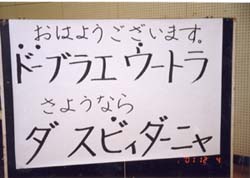 おはようございます。
ドーブラエ ウートラ
さようなら
ダ スビィダーニャ
'01 12 4